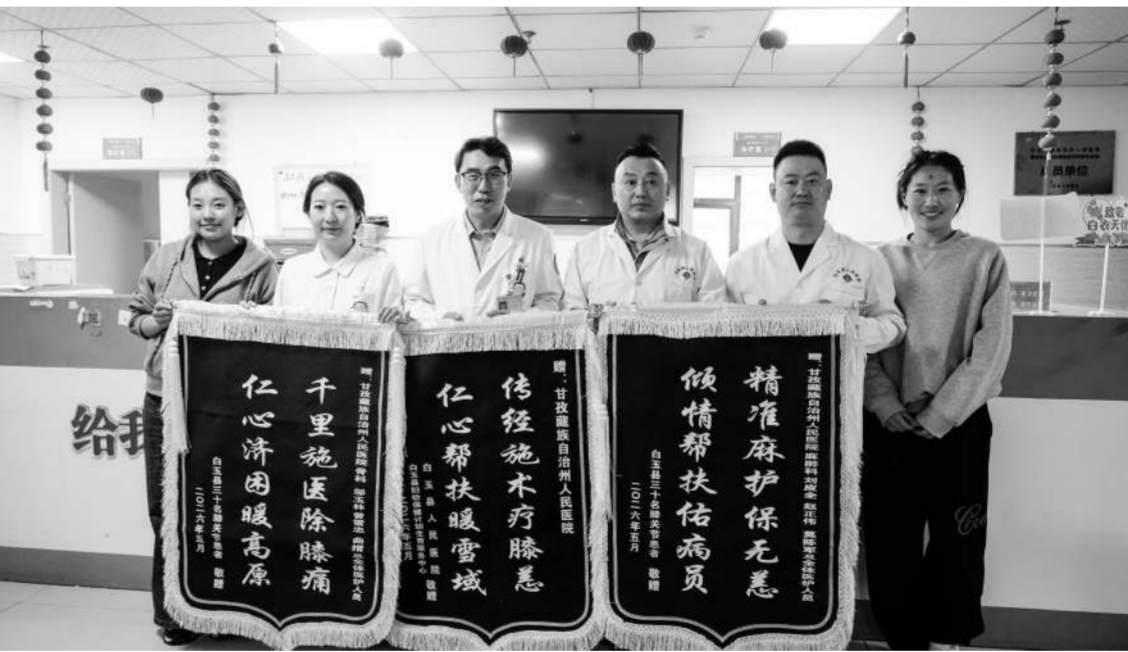 给我
成员单位
致敬
白衣天使
赠：甘孜藏族自治州人民医院 骨科
千里施医除膝痛
仁心济困暖高原
白玉县三十名膝关节患者 敬赠
二〇二六年五月
赠：甘孜藏族自治州人民医院
传经施术疗膝恙
仁心帮扶暖雪域
白玉县人民医院
白玉县妇幼保健计划生育服务中心
敬赠
二〇二六年五月
赠：甘孜藏族自治州人民医院 麻醉科 刘成全 赵正伟
精准麻护保无恙
倾情帮扶佑病员
白玉县三十名膝关节患者 敬赠
二〇二六年五月